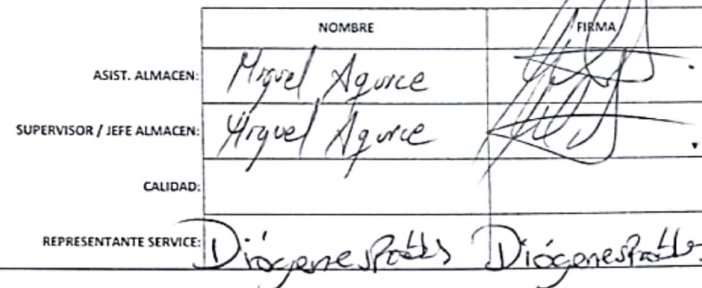 NOMBRE FIRMA
ASIST. ALMACEN: Miguel Agurce
SUPERVISOR / JEFE ALMACEN: Miguel Agurce
CALIDAD:
REPRESENTANTE SERVICE: Diógenes Diógenes